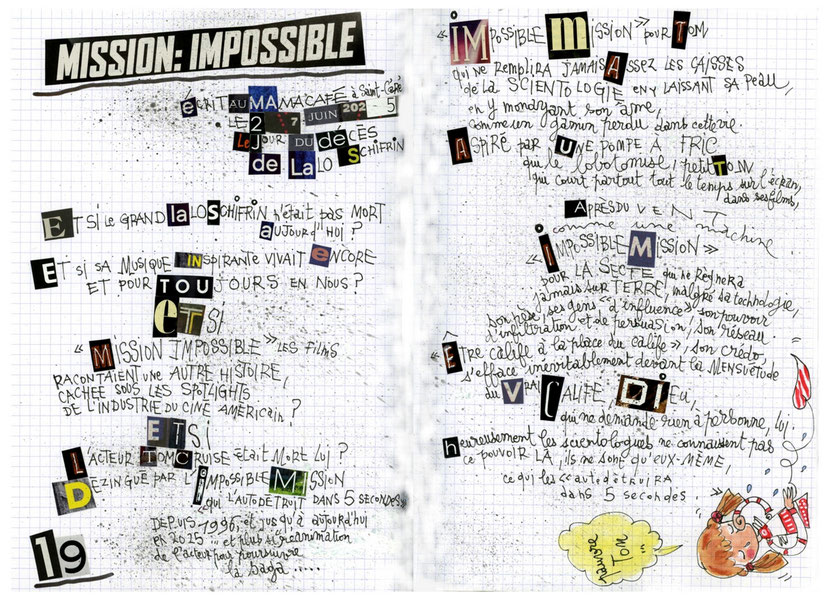 MISSION: IMPOSSIBLE
éCRIT AU MAMACAFÉ à SAINT-Céré
LE 27 JUIN 2025
Le JOUR DU déCÈS
de LaLO SCHIFRIN
ET SI LE GRAND laLO SCHIFRIN n'était PAS MORT
aUJOURd'HUI ?
ET SI SA MUSIQUE INSPIRANTE VIVAIT eNCORE
ET POUR TOUJOURS EN NOUS ?
eT SI
« MISSION IMPOSSIBLE » LES FILMS
RACONTAIENT UNE AUTRE HISTOIRE,
CACHÉE SOUS LES SPOTLIGHTS
DE L'INDUSTRIE DU CINE AMÉRICAIN ?
ET SI
L'ACTEUR TOM CRUISE ETAIT MORT LUI ?
DEZINGUE PAR L'iMPOSSIBLE MISSION
QUI L'AUTODETRUIT DANS 5 SECONDES
DEPUIS 1996, et jusqu'à aujourd'hui
EN 2025 ... et plus si réanimation
de l'acteur pour poursuivre
la saga .....
19
« IMPOSSIBLE MISSION » POUR TOM
qui NE REMPLIRA JAMAIS ASSEZ LES CAISSES
de LA SCIENTOLOGIE EN Y LAISSANT SA PEAU,
en y monayant son âme,
comme un gamin perdu dans cette
ASPIRÉ PAR UNE POMPE A FRIC
qui le lobotomise, petit TOM
qui court partout tout le temps sur l'écran,
dans ses films,
APRES DU VENT
comme une machine ...
« IMPOSSIBLE MISSION »
POUR LA SECTE qui NE RÉGNERA
jamais sur TERRE, malgré sa technologie,
son pèse, ses gens « d'influence » son pouvoir
d'infiltration et de persuasion, son réseau.
« ÊTRE calife à la place du calife », son crédo,
s'efface inévitablement devant la MENSUÉTUDE
du VRAI CALIFE, DIeu,
qui ne demande rien à personne, lui.
heureusement les scientologues ne connaissent pas
ce pouvoir LÀ, ils ne sont qu'EUX-MÊME,
ce qui les « autodétruira
dans 5 secondes. »
pauvre
TOM